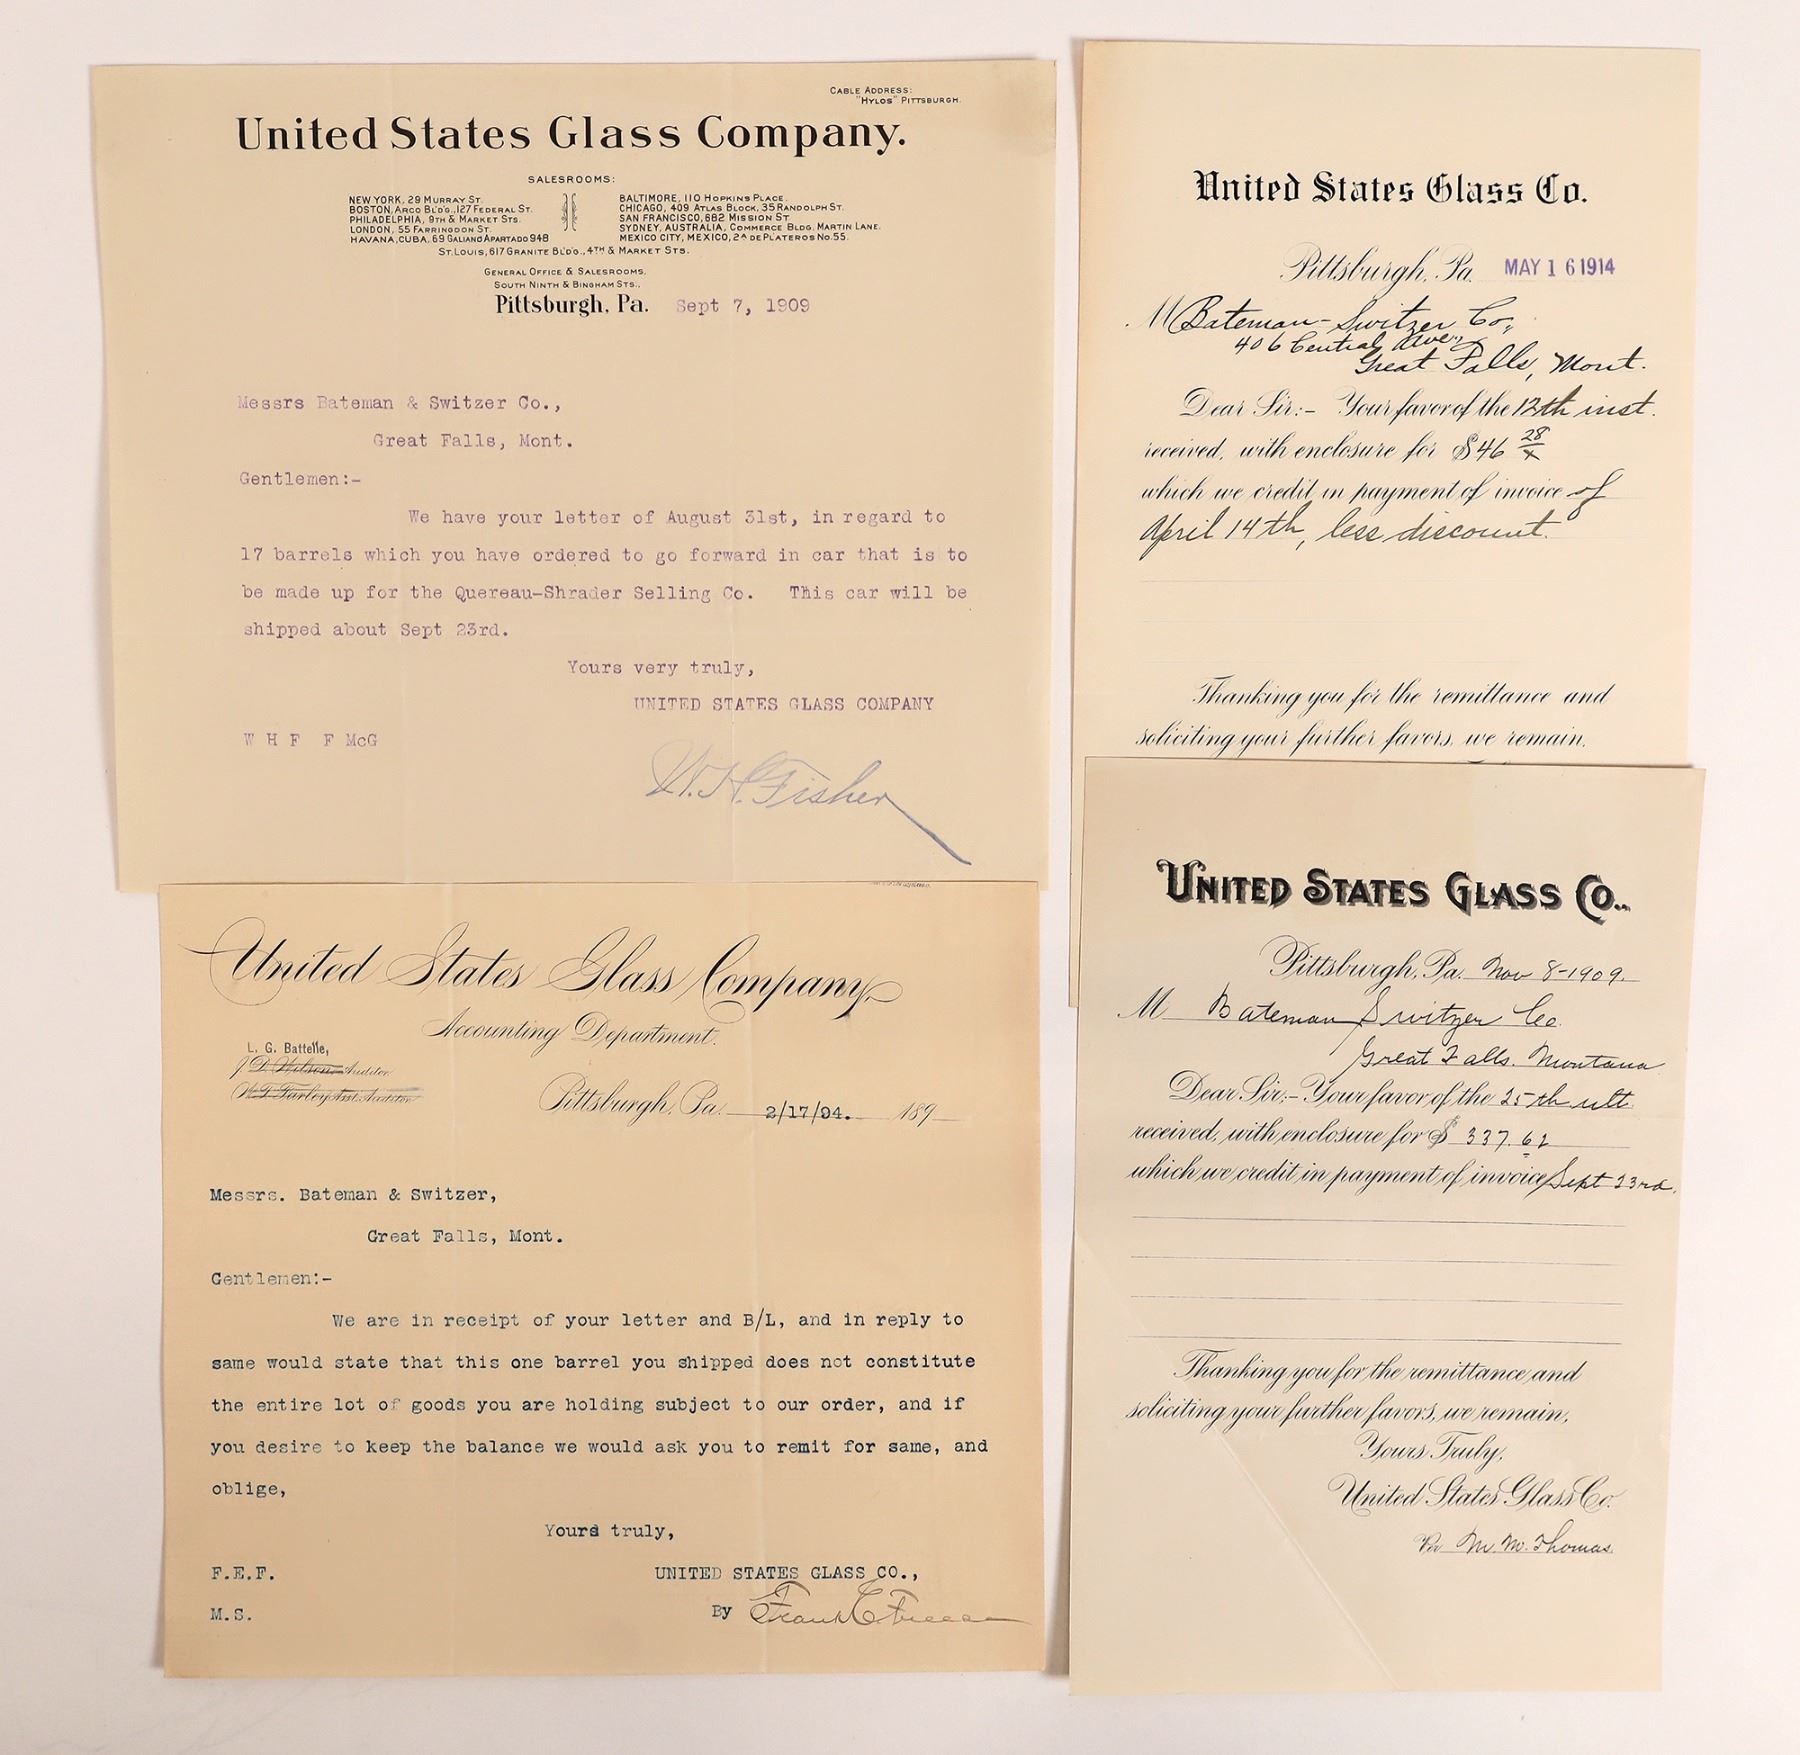 CABLE ADDRESS:
"HYLOS" PITTSBURGH.
United States Glass Company.
SALESROOMS:
NEW YORK, 29 MURRAY ST.
BOSTON, ARCO BLD'G., 127 FEDERAL ST.
PHILADELPHIA, 9TH & MARKET STS.
LONDON, 55 FARRINGDON ST.
HAVANA, CUBA, 69 GALIANO APARTADO 948
BALTIMORE, 110 HOPKINS PLACE.
CHICAGO, 409 ATLAS BLOCK, 35 RANDOLPH ST.
SAN FRANCISCO, 682 MISSION ST
SYDNEY, AUSTRALIA, COMMERCE BLDG. MARTIN LANE.
MEXICO CITY, MEXICO, 2A DE PLATEROS No. 55.
ST. LOUIS, 617 GRANITE BL'D'G., 4TH & MARKET STS.
GENERAL OFFICE & SALESROOMS,
SOUTH NINTH & BINGHAM STS.,
Pittsburgh, Pa. Sept 7, 1909
Messrs Bateman & Switzer Co.,
Great Falls, Mont.
Gentlemen:-
We have your letter of August 31st, in regard to
17 barrels which you have ordered to go forward in car that is to
be made up for the Quereau-Shrader Selling Co. This car will be
shipped about Sept 23rd.
Yours very truly,
UNITED STATES GLASS COMPANY
W H F F McG
W. H. Fisher
United States Glass Co.
Pittsburgh, Pa. MAY 16 1914
M Bateman-Switzer Co.,
406 Central Ave.,
Great Falls, Mont.
Dear Sir:- Your favor of the 12th inst.
received, with enclosure for $46 28/x
which we credit in payment of invoice of
April 14th, less discount.
Thanking you for the remittance and
soliciting your further favors, we remain,
United States Glass Company,
Accounting Department.
L. G. Battelle,
J. D. Wilson, Auditor
W. T. Farley Asst. Auditor
Pittsburgh, Pa. 2/17/94. 189
Messrs. Bateman & Switzer,
Great Falls, Mont.
Gentlemen:-
We are in receipt of your letter and B/L, and in reply to
same would state that this one barrel you shipped does not constitute
the entire lot of goods you are holding subject to our order, and if
you desire to keep the balance we would ask you to remit for same, and
oblige,
Yours truly,
F.E.F.
UNITED STATES GLASS CO.,
M.S.
By Frank E. Freese
UNITED STATES GLASS CO.,
Pittsburgh, Pa. Nov 8-1909.
M Bateman Switzer Co.
Great Falls. Montana
Dear Sir:- Your favor of the 25th ult.
received, with enclosure for $ 337.62
which we credit in payment of invoice Sept 23rd.
Thanking you for the remittance and
soliciting your further favors, we remain,
Yours Truly,
United States Glass Co.
Per M. M. Thomas.